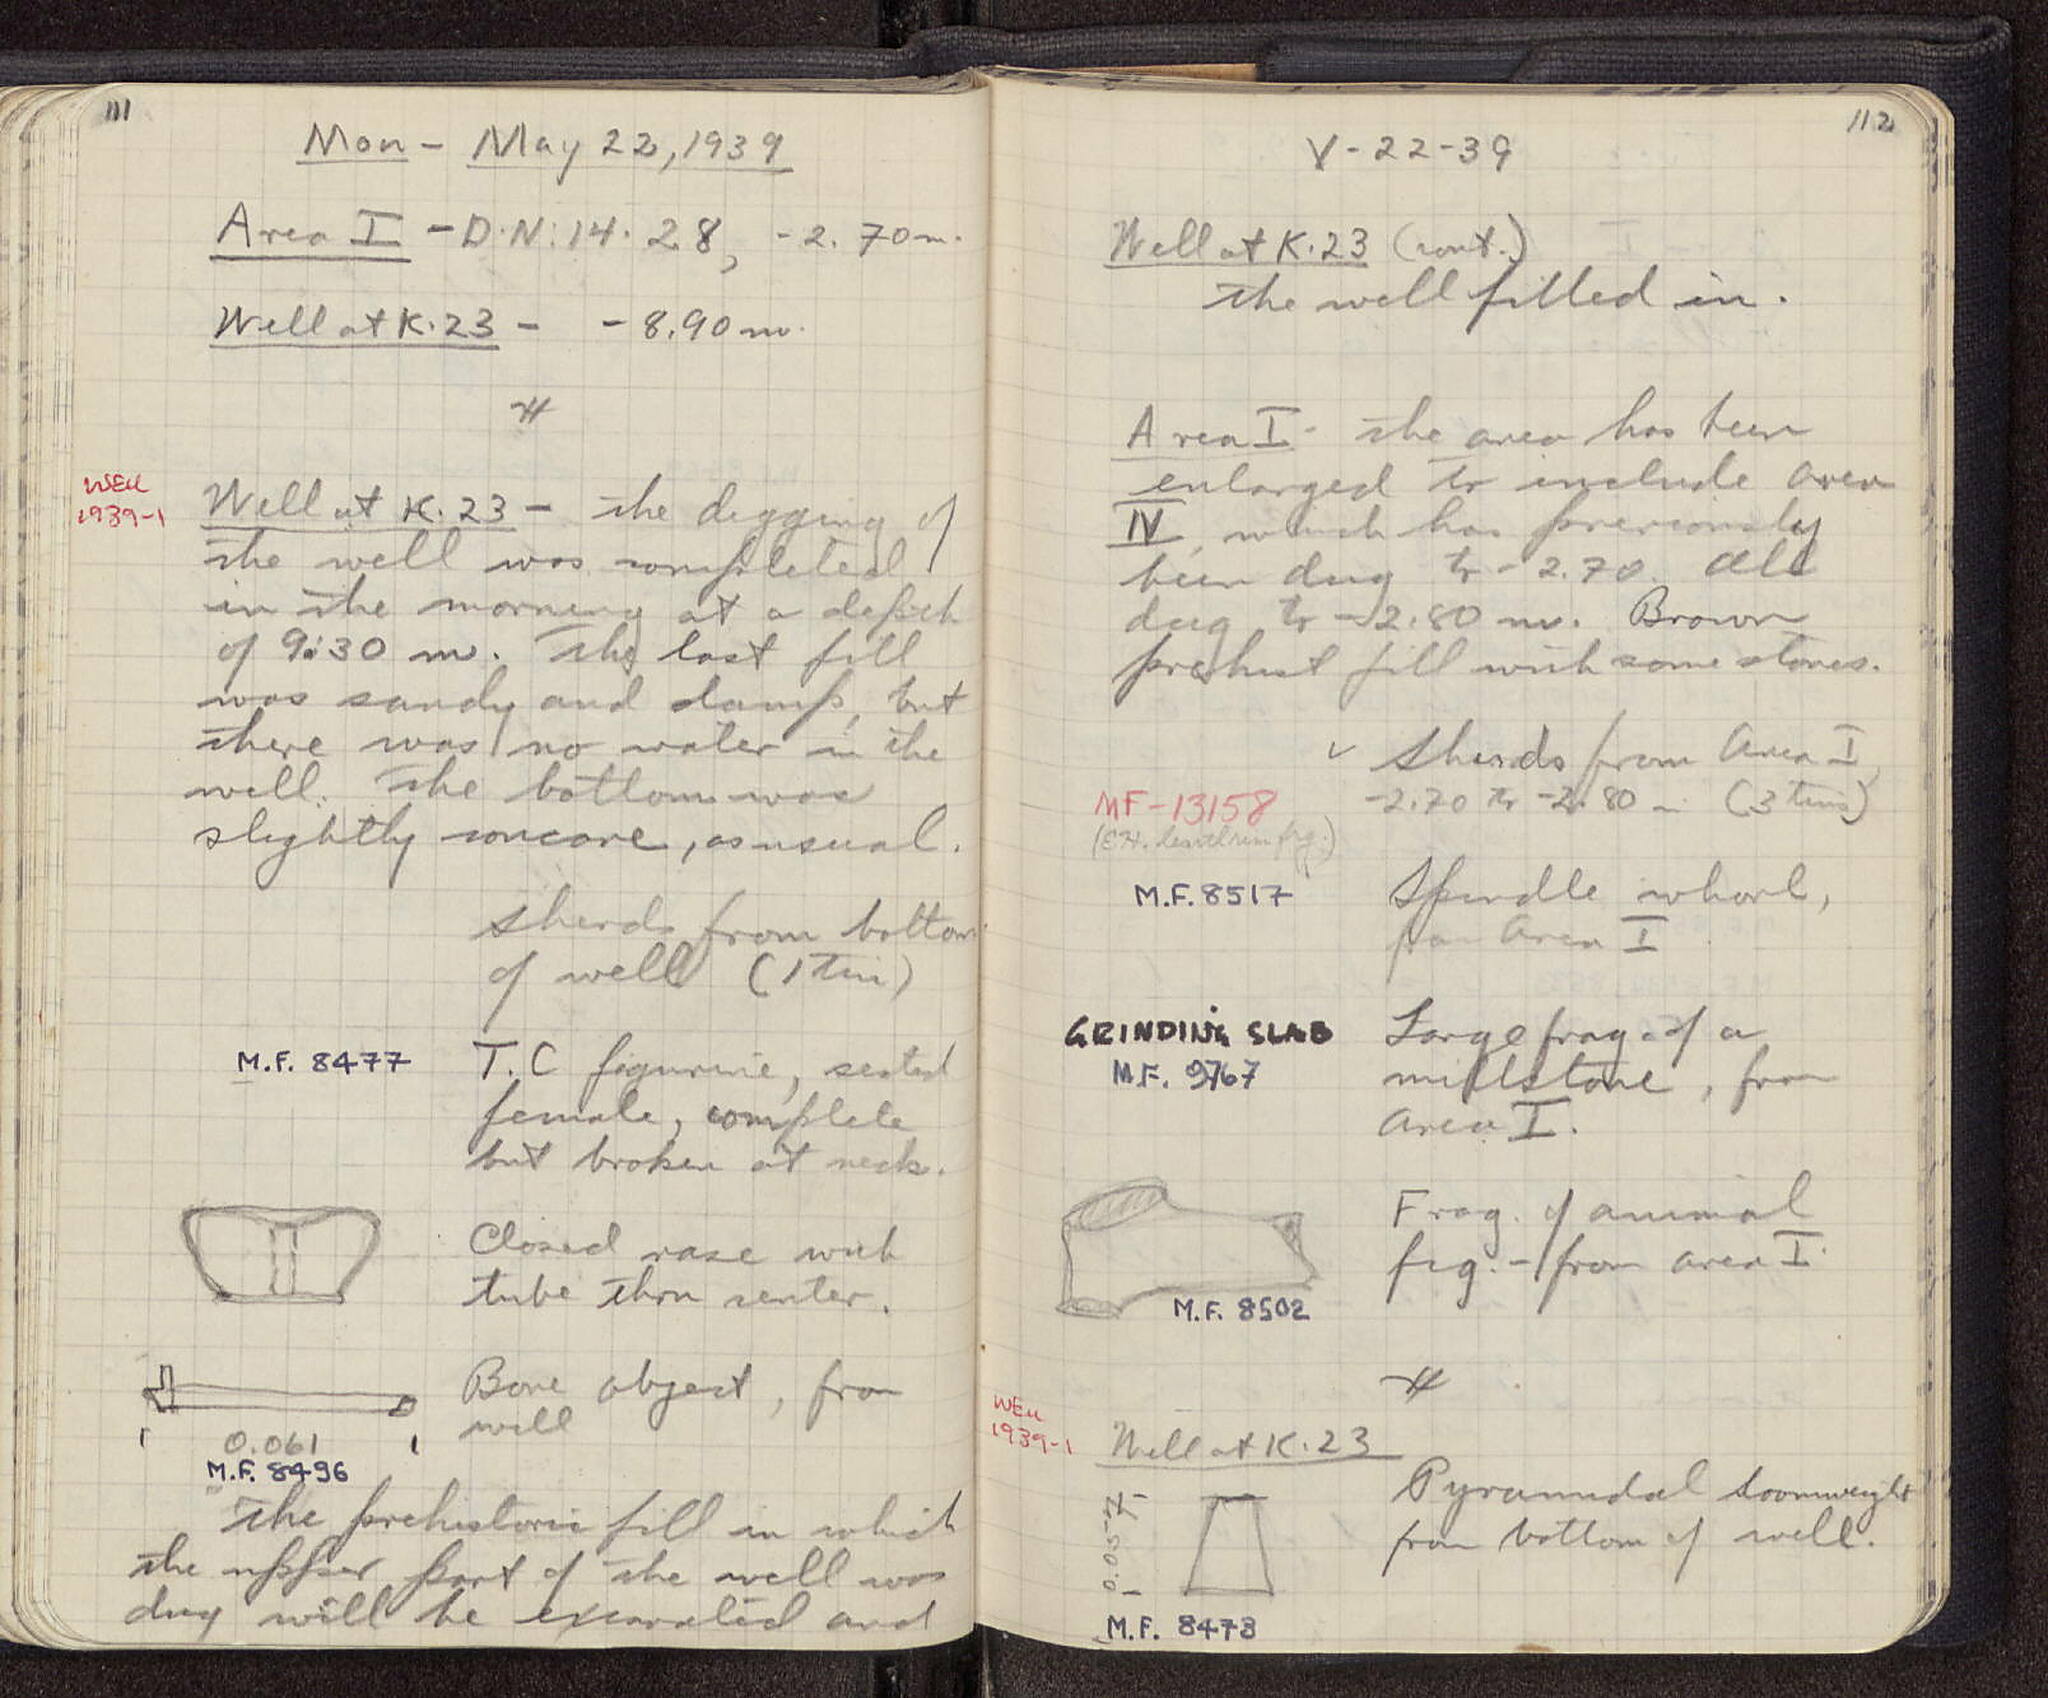 111
Mon - May 22, 1939
Area I - D.N: 14. 28, -2. 70 m.
Well at K.23 - -8.90 m.
WELL
1939-1
Well at K.23 - The digging of
the well was completed
in the morning at a depth
of 9.30 m. The last fill
was sandy and damp, but
there was no water in the
well. The bottom was
slightly concave, as usual.
Sherds from bottom
of well (1 tin)
M.F. 8477
T.C figurine, seated
female, complete
but broken at neck.
Closed vase with
tube thru center.
Bone object, from
well
0.061
M.F. 8496
The prehistoric fill in which
the upper part of the well was
dug will be excavated and
112
V-22-39
Well at K.23 (cont.)
the well filled in.
Area I - The area has been
enlarged to include area
IV, which has previously
been dug to -2.70. All
dug to -2.80 m. Brown
prehist fill with some stones.
✓ Sherds from Area I,
-2.70 to -2.80 m (3 tins)
MF-13158
(E.H. hearth rim frg.)
M.F. 8517
Spindle whorl,
from Area I
GRINDING SLAB
M.F. 9767
Large frag. of a
millstone, from
Area I.
Frag. of animal
fig. - from area I
M.F. 8502
WELL
1939-1
Well at K.23
Pyramidal loomweight
from bottom of well.
0.057
M.F. 8478